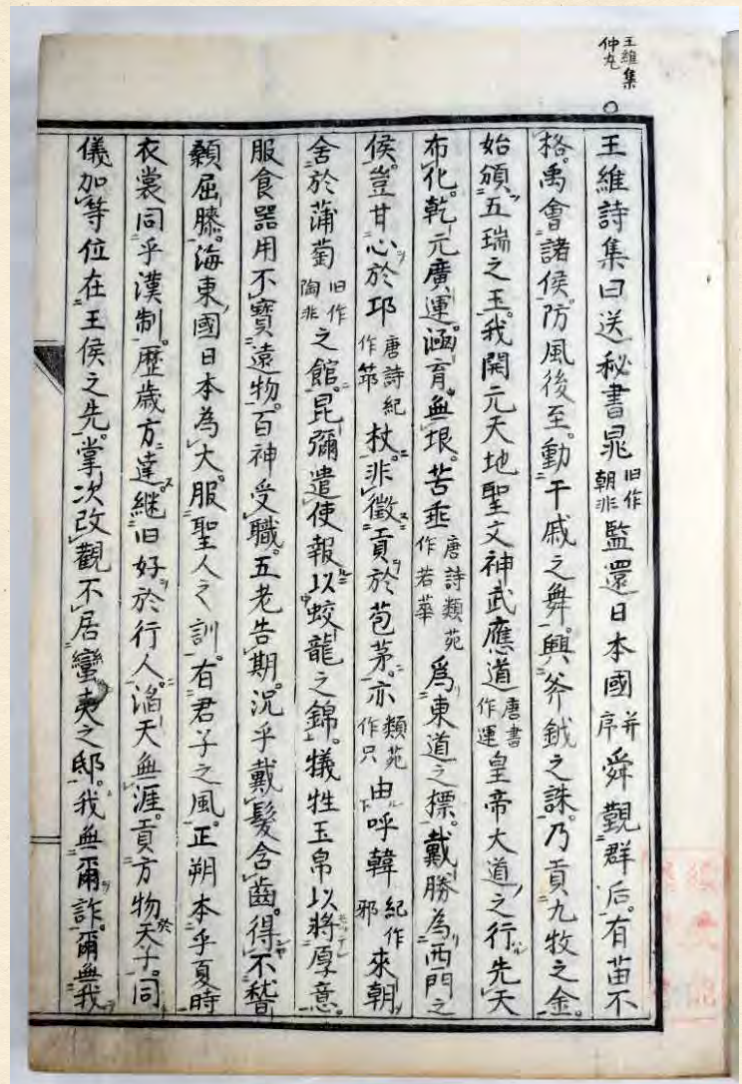 王維集
仲九
王維詩集曰送秘書晁旧作朝非監還日本國并序舜觀群后。有苗不
格。禹會諸侯。防風後至。動干戚之舞。興斧鉞之誅。乃貢九牧之金。
始頒五瑞之玉。我開元天地聖文神武應道唐書作運皇帝大道之行。先天
布化。乾元廣運。涵育無垠。苦垂唐詩類苑作若華為東道之標。戴勝為西門之
侯。豈甘心於邛唐詩紀作筇杖。非徵貢於苞茅。亦類苑作只由呼韓紀作邪來朝
舍於蒲萄旧作陶非之館。昆彌遣使報以蛟龍之錦。犠牲玉帛以將厚意。
服食器用不寶遠物。百神受職。五老告期。況乎戴髮含齒。得不稽
顙屈膝。海東國日本為大。服聖人之訓。有君子之風。正朔本乎夏時
衣裳同乎漢制。歷歳方達。継旧好於行人。滔天無涯。貢方物於天子。同
儀加等位在王侯之先。掌次改觀不居蠻夷之邸。我無爾詐。爾無我